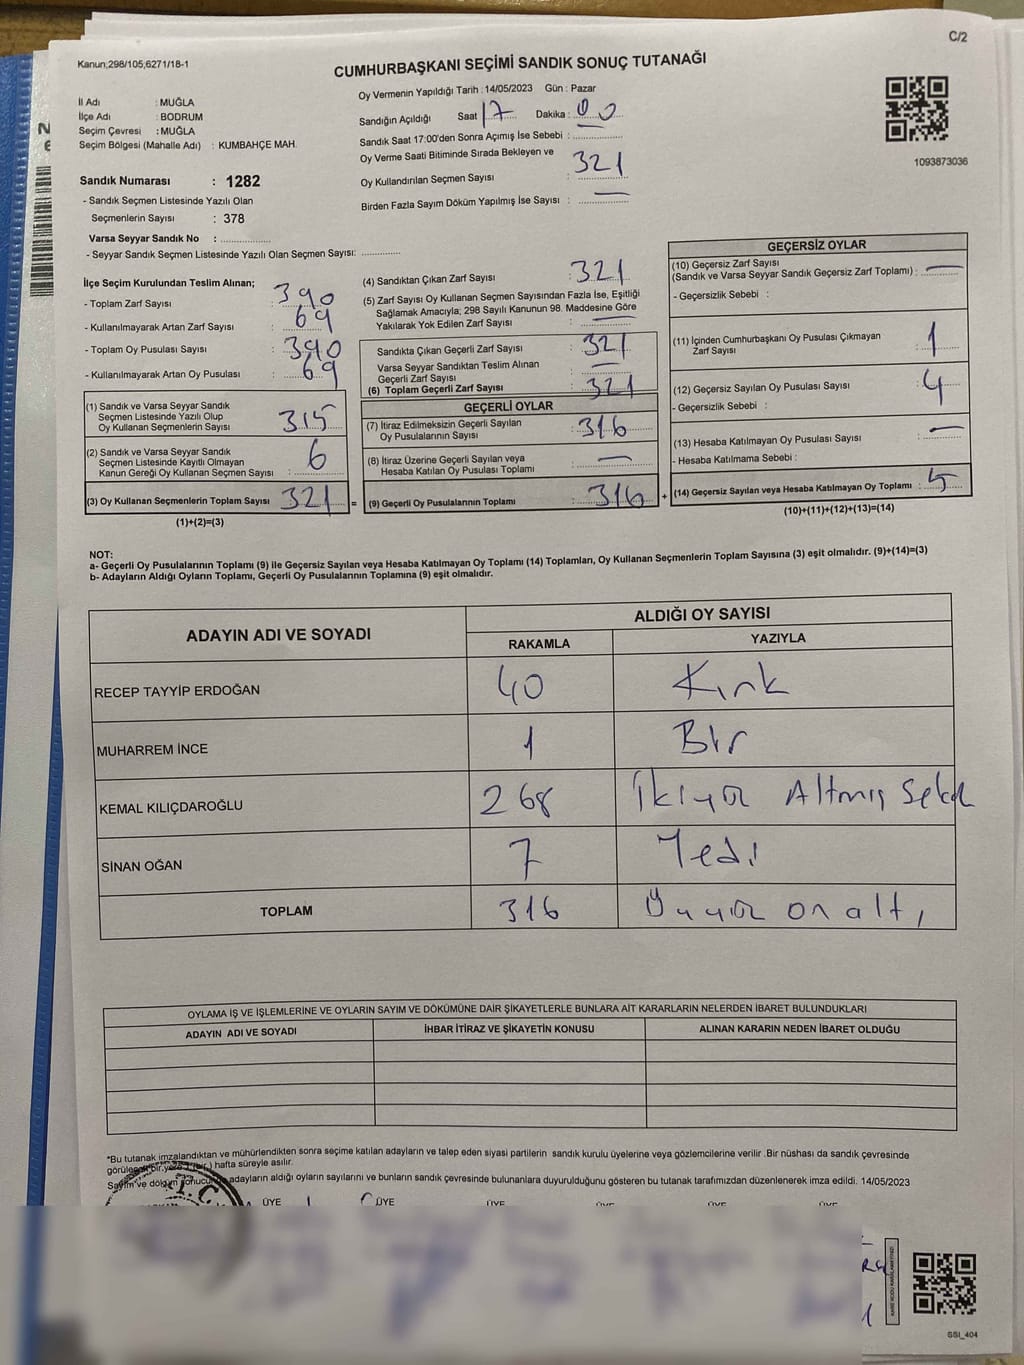 C/2
Kanun;298/105;6271/18-1
CUMHURBAŞKANI SEÇİMİ SANDIK SONUÇ TUTANAĞI
İl Adı : MUĞLA
İlçe Adı : BODRUM
Seçim Çevresi : MUĞLA
Seçim Bölgesi (Mahalle Adı) : KUMBAHÇE MAH.
Sandık Numarası : 1282
- Sandık Seçmen Listesinde Yazılı Olan
Seçmenlerin Sayısı : 378
Varsa Seyyar Sandık No : ..................
- Seyyar Sandık Seçmen Listesinde Yazılı Olan Seçmen Sayısı: ..............
Oy Vermenin Yapıldığı Tarih : 14/05/2023 Gün : Pazar
Sandığın Açıldığı Saat 17 Dakika : 00
Sandık Saat 17:00'den Sonra Açımış İse Sebebi : ..............
Oy Verme Saati Bitiminde Sırada Bekleyen ve
Oy Kullandırılan Seçmen Sayısı : 321
Birden Fazla Sayım Döküm Yapılmış İse Sayısı : —
1093873036
İlçe Seçim Kurulundan Teslim Alınan;
- Toplam Zarf Sayısı : 390
- Kullanılmayarak Artan Zarf Sayısı : 69
- Toplam Oy Pusulası Sayısı : 390
- Kullanılmayarak Artan Oy Pusulası : 69
(1) Sandık ve Varsa Seyyar Sandık
Seçmen Listesinde Yazılı Olup
Oy Kullanan Seçmenlerin Sayısı : 315
(2) Sandık ve Varsa Seyyar Sandık
Seçmen Listesinde Kayıtlı Olmayan
Kanun Gereği Oy Kullanan Seçmen Sayısı : 6
(3) Oy Kullanan Seçmenlerin Toplam Sayısı : 321 =
(1)+(2)=(3)
(4) Sandıktan Çıkan Zarf Sayısı : 321
(5) Zarf Sayısı Oy Kullanan Seçmen Sayısından Fazla İse, Eşitliği
Sağlamak Amacıyla; 298 Sayılı Kanunun 98. Maddesine Göre
Yakılarak Yok Edilen Zarf Sayısı : —
Sandıkta Çıkan Geçerli Zarf Sayısı : 321
Varsa Seyyar Sandıktan Teslim Alınan
Geçerli Zarf Sayısı : —
(6) Toplam Geçerli Zarf Sayısı : 321
GEÇERLİ OYLAR
(7) İtiraz Edilmeksizin Geçerli Sayılan
Oy Pusulalarının Sayısı : 316
(8) İtiraz Üzerine Geçerli Sayılan veya
Hesaba Katılan Oy Pusulası Toplamı : —
(9) Geçerli Oy Pusulalarının Toplamı : 316 +
GEÇERSİZ OYLAR
(10) Geçersiz Zarf Sayısı
(Sandık ve Varsa Seyyar Sandık Geçersiz Zarf Toplamı) : —
- Geçersizlik Sebebi :
(11) İçinden Cumhurbaşkanı Oy Pusulası Çıkmayan
Zarf Sayısı : 1
(12) Geçersiz Sayılan Oy Pusulası Sayısı : 4
- Geçersizlik Sebebi :
(13) Hesaba Katılmayan Oy Pusulası Sayısı : —
- Hesaba Katılmama Sebebi :
(14) Geçersiz Sayılan veya Hesaba Katılmayan Oy Toplamı : 5
(10)+(11)+(12)+(13)=(14)
NOT:
a- Geçerli Oy Pusulalarının Toplamı (9) ile Geçersiz Sayılan veya Hesaba Katılmayan Oy Toplamı (14) Toplamları, Oy Kullanan Seçmenlerin Toplam Sayısına (3) eşit olmalıdır. (9)+(14)=(3)
b- Adayların Aldığı Oyların Toplamı, Geçerli Oy Pusulalarının Toplamına (9) eşit olmalıdır.
ADAYIN ADI VE SOYADI ALDIĞI OY SAYISI
RAKAMLA YAZIYLA
RECEP TAYYİP ERDOĞAN 40 Kırk
MUHARREM İNCE 1 Bir
KEMAL KILIÇDAROĞLU 268 İkiyüz Altmış Sekiz
SİNAN OĞAN 7 Yedi
TOPLAM 316 Üçyüz on altı
OYLAMA İŞ VE İŞLEMLERİNE VE OYLARIN SAYIM VE DÖKÜMÜNE DAİR ŞİKAYETLERLE BUNLARA AİT KARARLARIN NELERDEN İBARET BULUNDUKLARI
ADAYIN ADI VE SOYADI İHBAR İTİRAZ VE ŞİKAYETİN KONUSU ALINAN KARARIN NEDEN İBARET OLDUĞU
*Bu tutanak imzalandıktan ve mühürlendikten sonra seçime katılan adayların ve talep eden siyasi partilerin sandık kurulu üyelerine veya gözlemcilerine verilir .Bir nüshası da sandık çevresinde
görülecek bir yere 1 (bir ) hafta süreyle asılır.
Sayım ve döküm sonucunda adayların aldığı oyların sayılarını ve bunların sandık çevresinde bulunanlara duyurulduğunu gösteren bu tutanak tarafımızdan düzenlenerek imza edildi. 14/05/2023
T.C.
ÜYE ÜYE ÜYE ÜYE ÜYE ÜYE
GSI_404